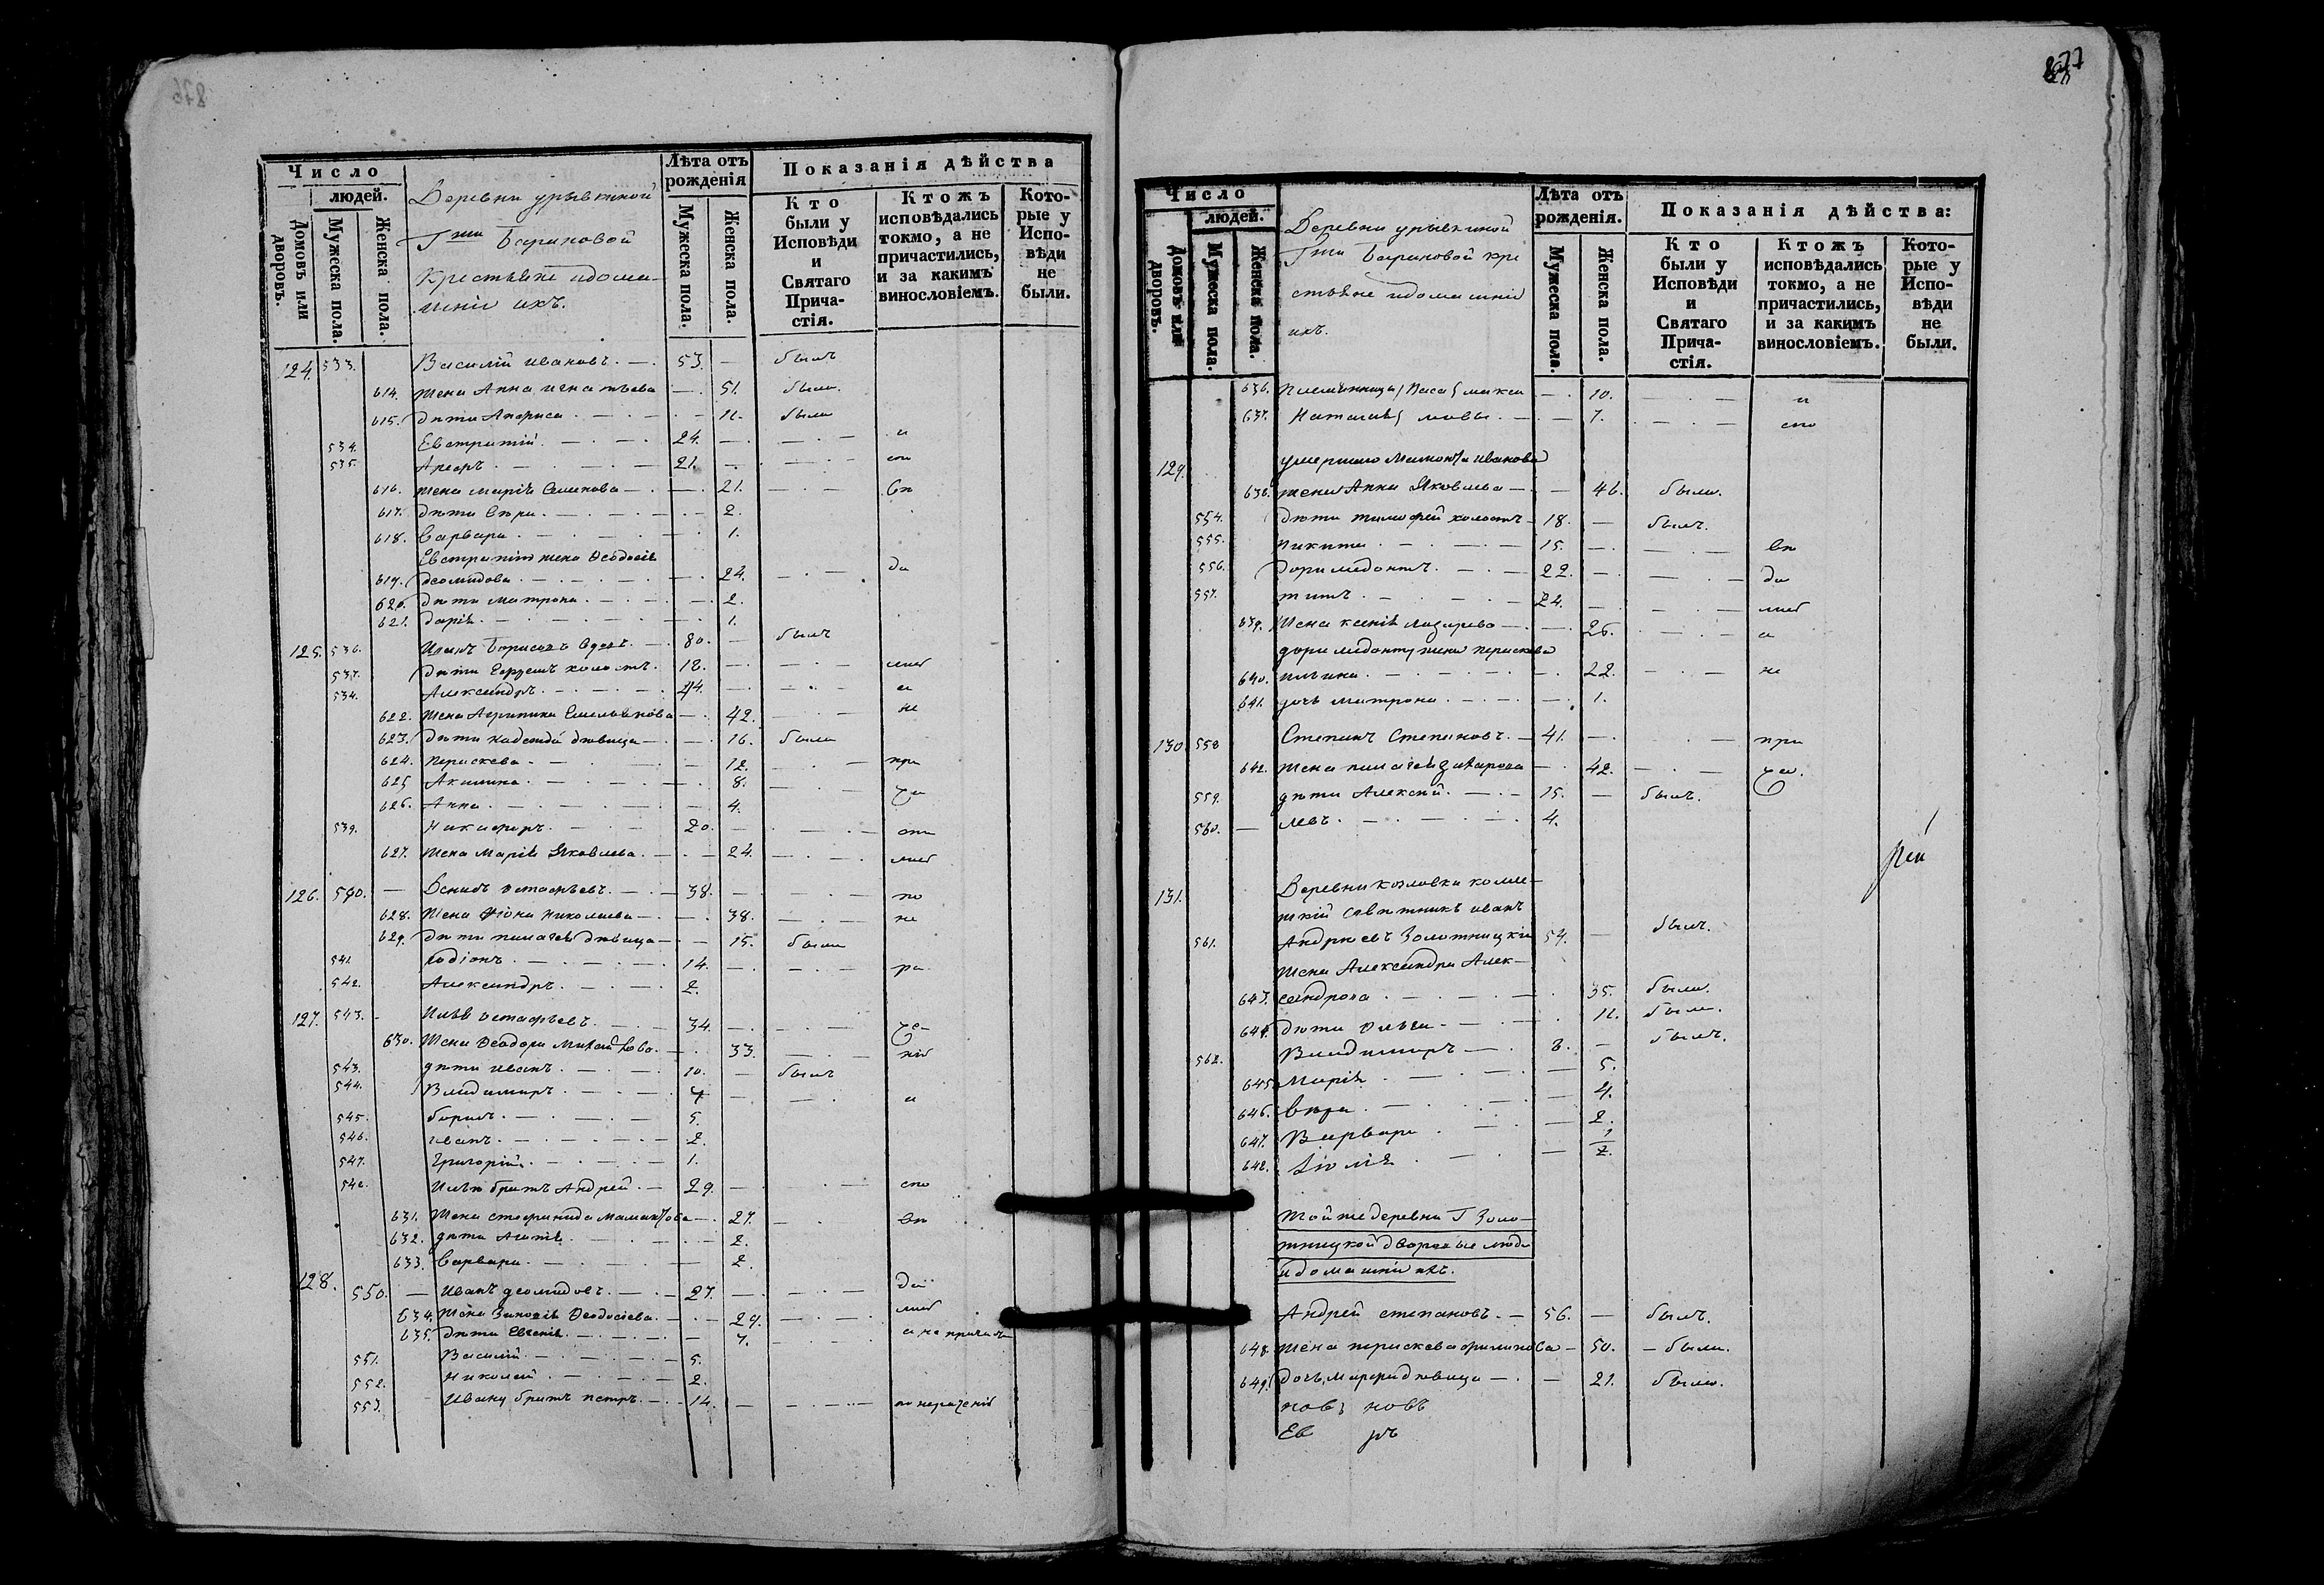 876
Число
людей.
Домовъ или дворовъ.
Мужеска пола.
Женска пола.
Деревни урывкиной
Гжи Бариновой
Крестьяне идома-
шніи ихъ.
Лѣта отъ рожденія
Мужеска пола.
Женска пола.
Показанія дѣйства
Кто были у Исповѣди и Святаго Прича- стія.
Ктожъ исповѣдались токмо, а не причастились, и за какимъ винословіемъ.
Кото- рые у Испо- вѣди не были.
124. 533. Василій ивановъ. 53. былъ
614. жена Анна игнатьева 51. была
615. дѣти 11. была
534. Евстратій. 24. и
535. 21.
616. жена марія Семенова 21.
617. дѣти вѣра. 2.
618. варвара. 1.
Евстратія жена Ѳеодосія
619. деомидова. 24. да
620. дѣти матрона. 2.
621. дарія. 1.
125. 536. Иванъ Борисовъ вдовъ. 80. былъ
537. дѣти Ефремъ холостъ. 18.
534. Александръ. 44. и
622. жена Агрипина Емельянова 42. не
623. дѣти надежда дѣвица 16. была
624. Параскева 12. при
625 Акилина. 8.
626. Анна. 4. ча
539. Никифоръ. 20.
627. жена Марія Яковлева. 24.
126. 540. Денисъ остафьевъ. 38. по
628. жена Николаева 38. не
629. дѣти пелагея дѣвица 15. была
541. Родіонъ. 14. ра
542. Александръ. 2.
127. 543. Илья остафьевъ. 34. че-
630. жена Ѳеодора Михайлова. 33. нію
543. дѣти иванъ. 10. былъ
544. Владимиръ. 7 и
545. борисъ. 5.
546. иванъ. 2.
547. Григорій. 1.
548. Ильи братъ Андрей. 29. спо
631. жена степанида мамантова 27. вѣ
632. дѣти Агапія. 2.
633. варвара. 2.
128. 550. Иванъ деомидовъ. 27. да
634. жена Зиновія Ѳеодосіева. 29.
635. дѣти Евгенія. 7.
551. Василій. 5.
552. Николай. 2.
553. Ивану братъ петръ. 14. по нераченію
877
Число
людей.
Домовъ или дворовъ.
Мужеска пола.
Женска пола.
Деревни урывкиной
Гжи Бариновой кре
стьяне идомашніи
ихъ.
Лѣта отъ рожденія.
Мужеска пола.
Женска пола.
Показанія дѣйства:
Кто были у Исповѣди и Святаго Прича- стія.
Ктожъ исповѣдались токмо, а не причастились, и за какимъ винословіемъ.
Кото- рые у Испо- вѣди не были.
636. племянница Васа макси 10. и
637. Наталія мовы. 7. спо
129. умершаго Мамонта иванова
638. жена Анна Яковлева 46. была.
554. дѣти тимофей холостъ 18. былъ.
555. никита. 15. вѣ
556. доримедонтъ. 22. да
557. титъ. 24.
639. жена ксенія лазарева 26. и
доримедонту жена параскева
640. ильина. 22. не
641. дочь матрона. 1.
130 558 Степанъ Степановъ. 41. при
642. жена пелагея захарова 42. ча.
559. дѣти Алексей. 15. былъ.
560. левъ. 4.
131. Деревни козловки колле-
жскій савѣтникъ иванъ
561. Андреевъ Золотницкій 54. былъ.
жена Александра Алек-
643. сандрова. 35. была.
644. дѣти Ольга 11. была.
562. Владимиръ 8. былъ.
645 Марія 5.
646. вѣра. 4.
647. Варвара 2.
648. Юлія 1/2.
тойже деревни Г Золо-
тницкой дворовые люди
идомашніи ихъ.
Андрей степановъ. 56. былъ.
648. жена параскева филипова 50. была.
649. дочь марфа дѣвица 21. была.
новъ новъ
Ев ръ